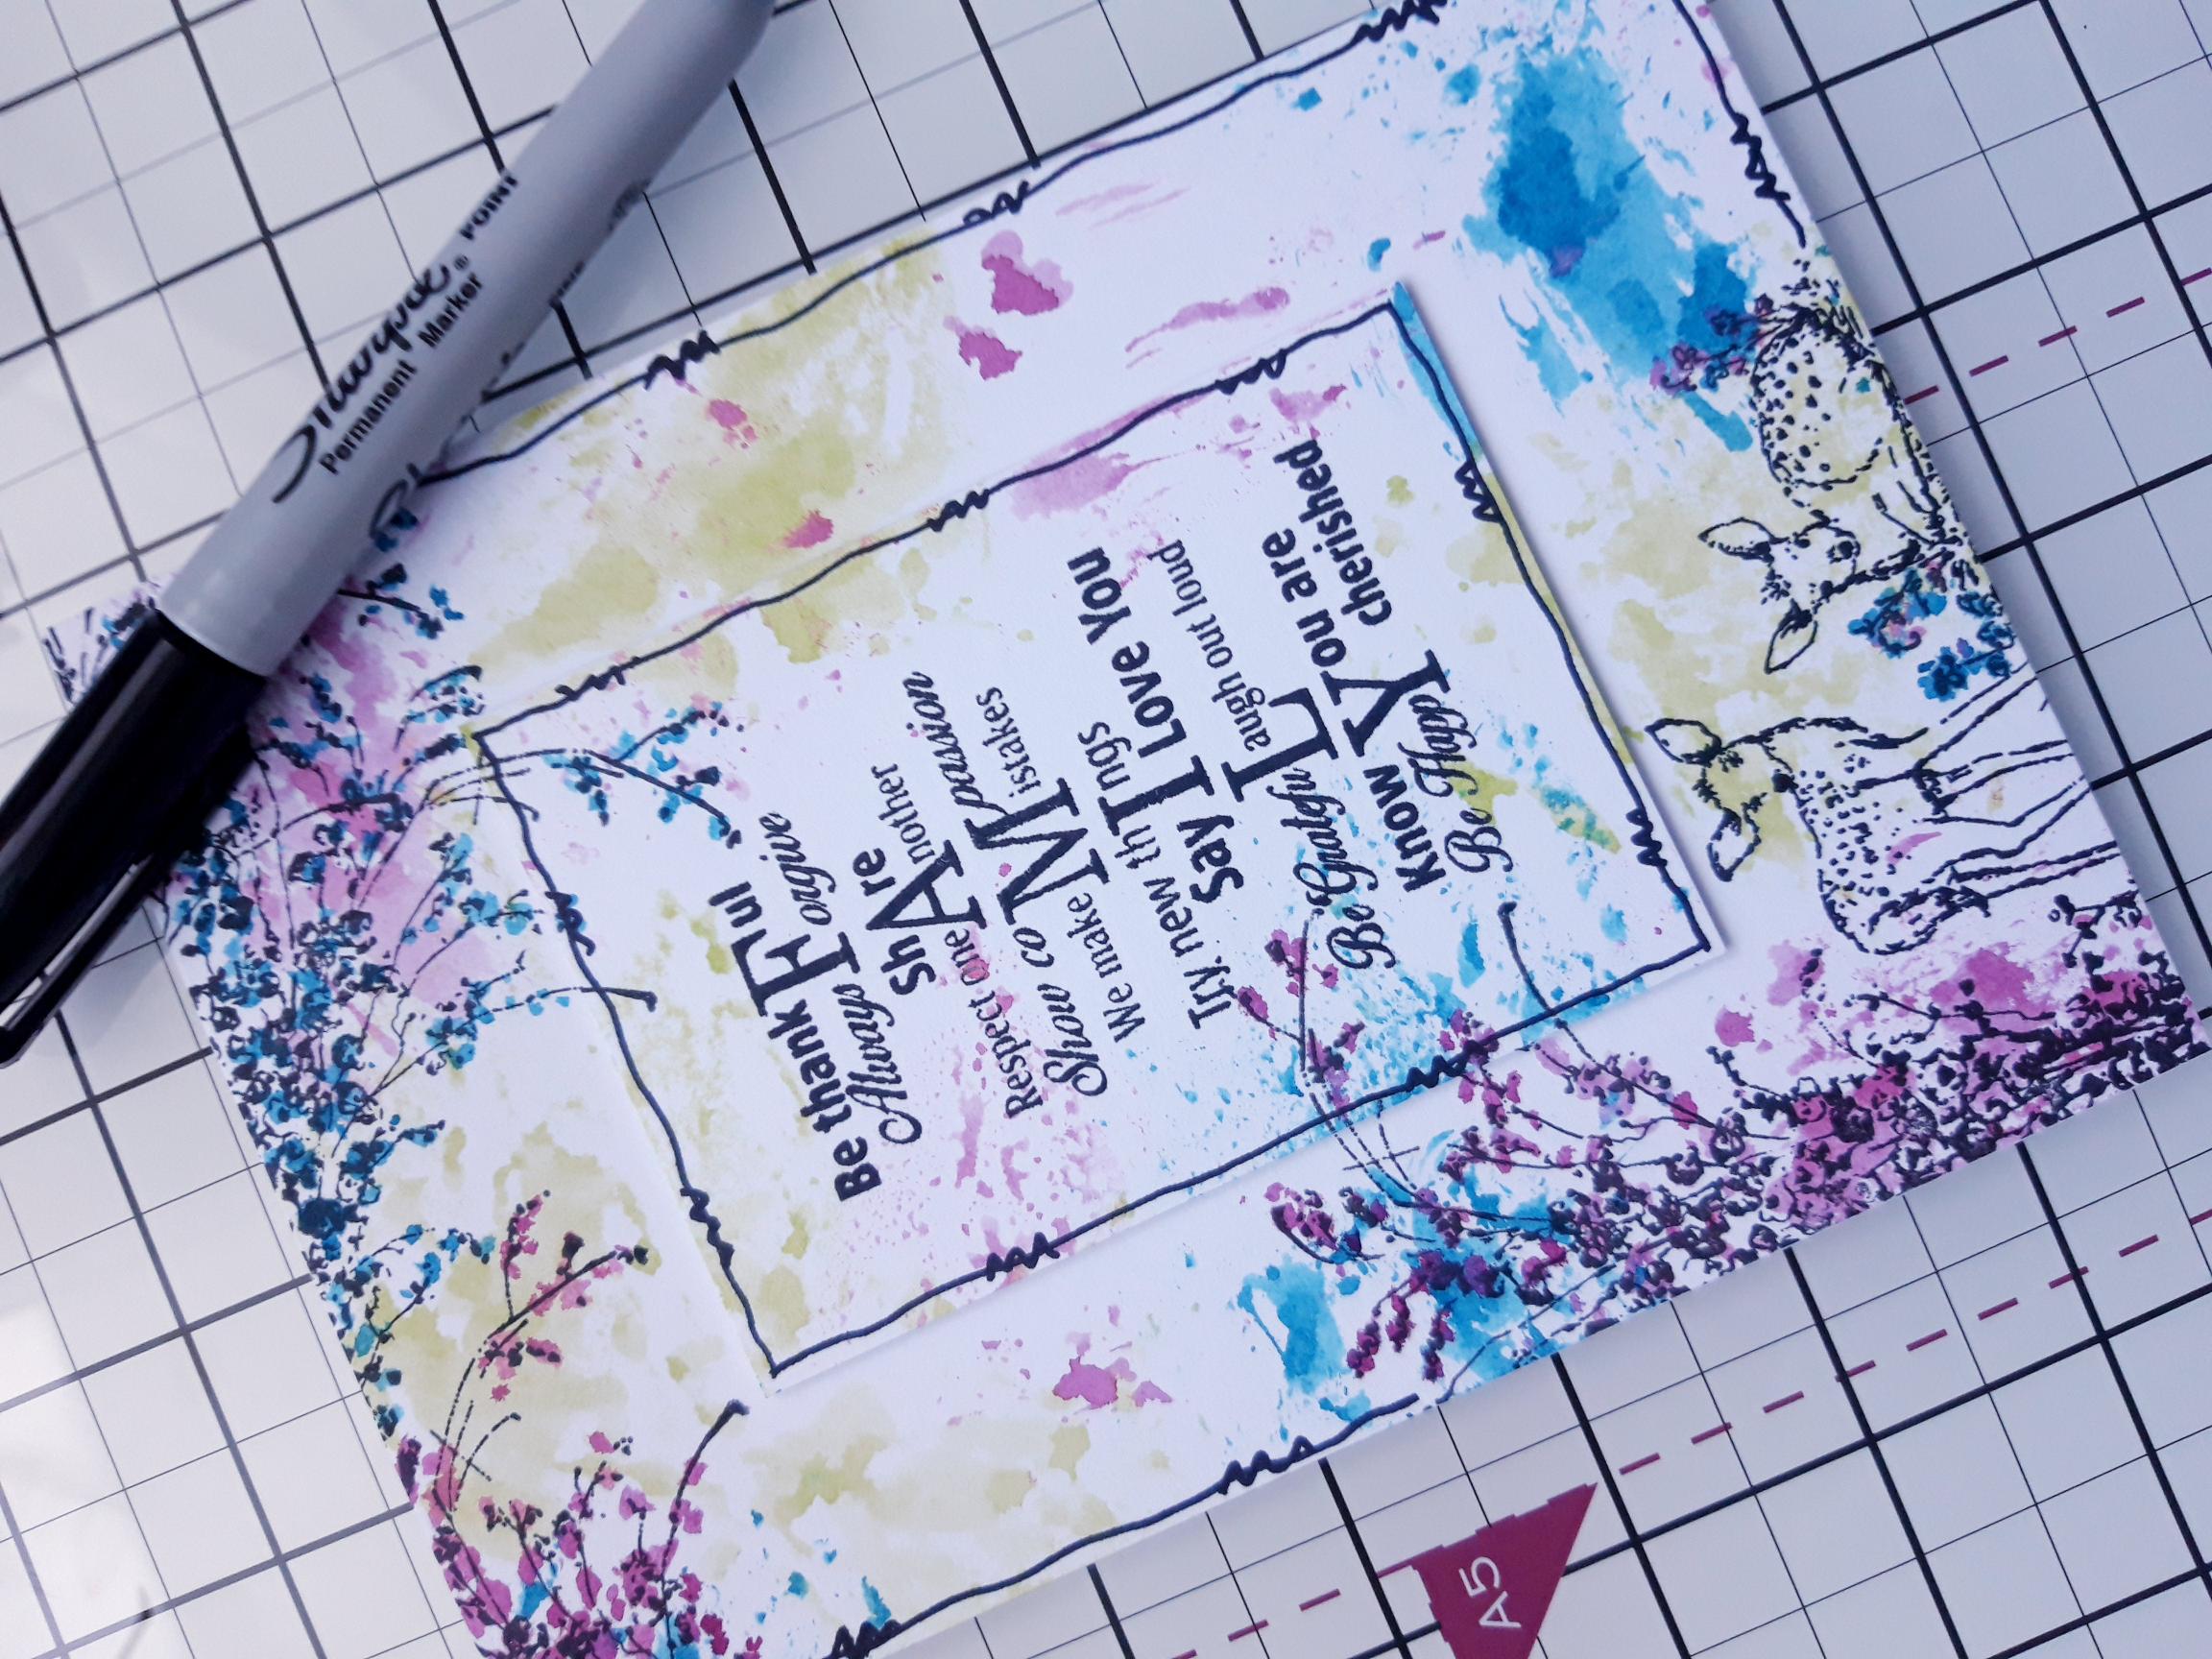 Be thankFul
Always Forgive
ShAre
Respect one Another
Show coMpassion
We make Mistakes
Try new thIngs
Say I Love You
Laugh out loud
Be Grateful
Know You are
cherished
Be Happy
Sharpie®
Permanent Marker
POINT
A5